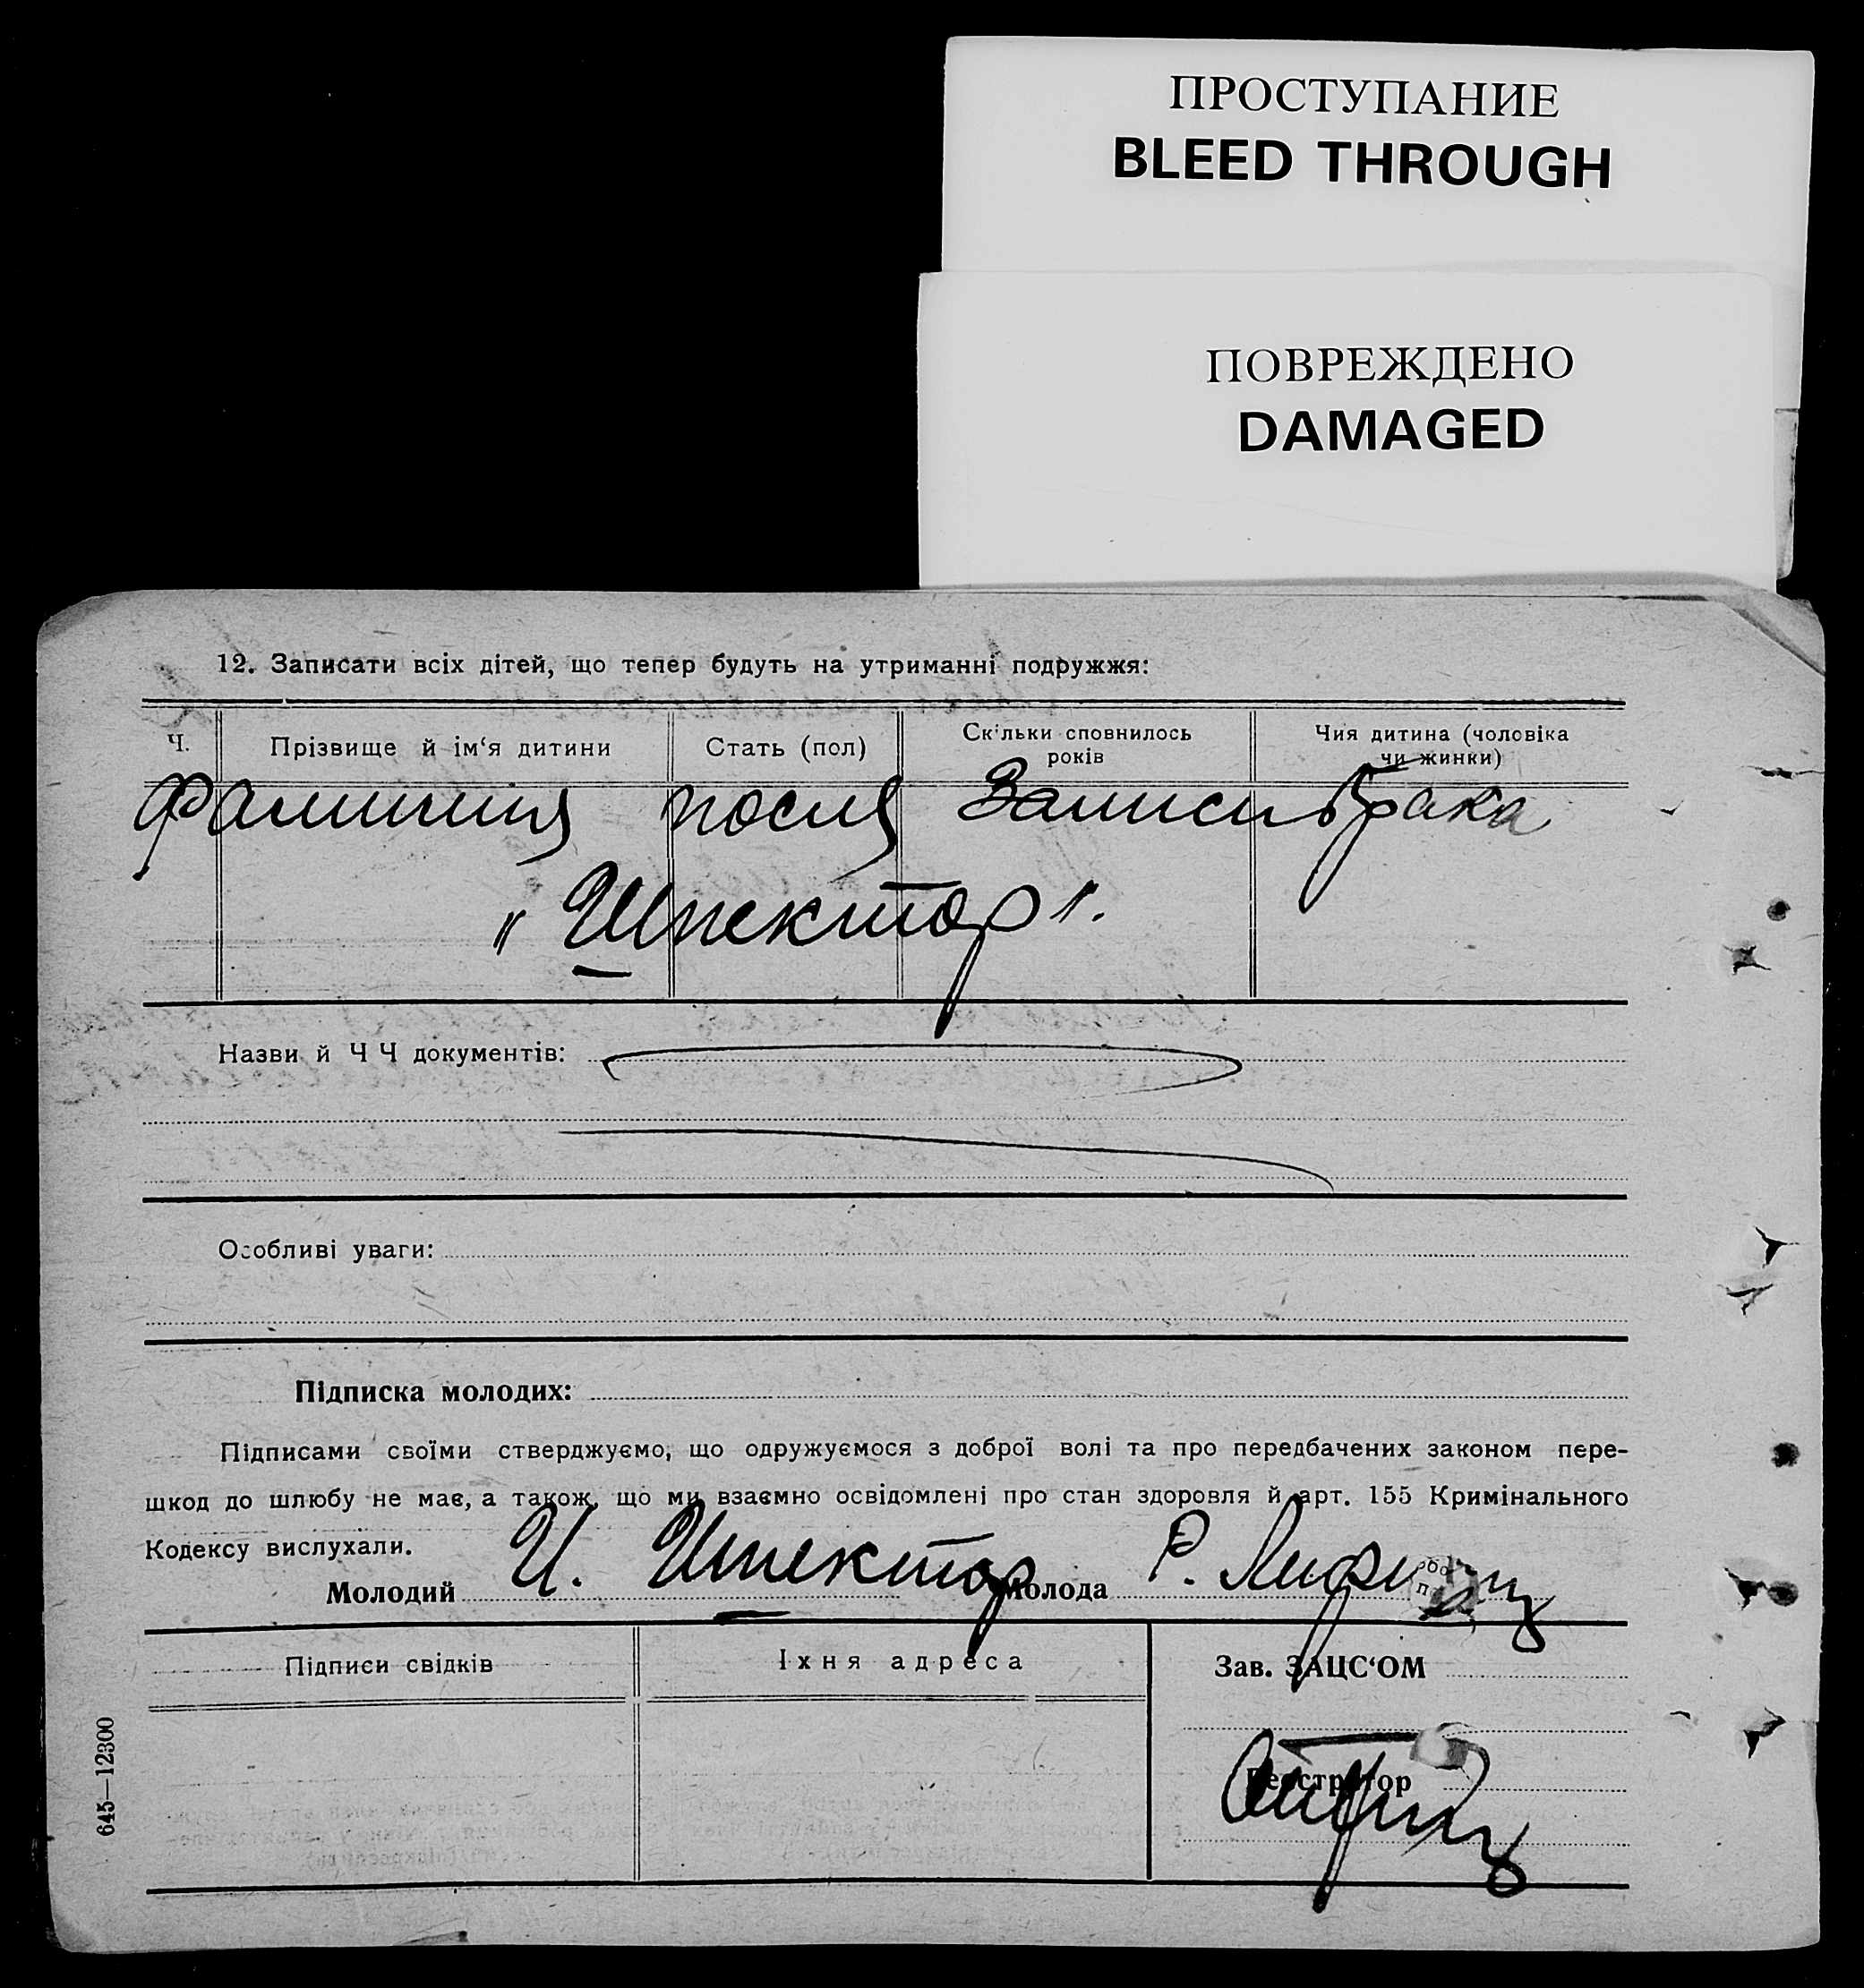 ПРОСТУПАНИЕ
BLEED THROUGH
ПОВРЕЖДЕНО
DAMAGED
12. Записати всіх дітей, що тепер будуть на утриманні подружжя:
Ч.
Прізвище й ім‘я дитини
Стать (пол)
Скільки сповнилось
років
Чия дитина (чоловіка
чи жинки)
Фамилия после Записи брака
„Шпектор".
Назви й Ч Ч документів:
Особливі уваги:
Підписка молодих:
Підписами своїми стверджуємо, що одружуємося з доброї волі та про передбачених законом пере-
шкод до шлюбу не має, а також, що ми взаємно освідомлені про стан здоровля й арт. 155 Кримінального
Кодексу вислухали.
Молодий И. Шпектор Молода Р.
Підписи свідків
Їхня адреса
Зав. ЗАЦС‘ОМ
Реєстратор
645—12300